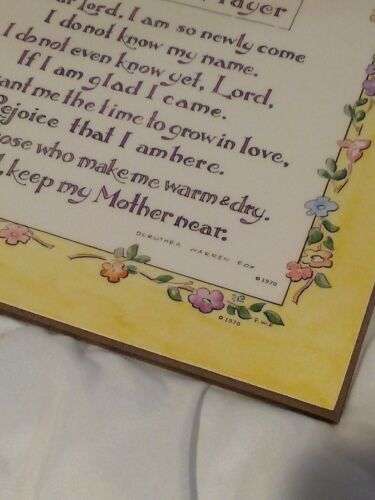 Prayer
Lord, I am so newly come
I do not know my name.
I do not even know yet, Lord,
If I am glad I came.
me the time to grow in love,
Rejoice that I am here.
who make me warm & dry.
keep my Mother near.
DOROTHEA WARREN FOX
©1970
©1970 F.W.F.